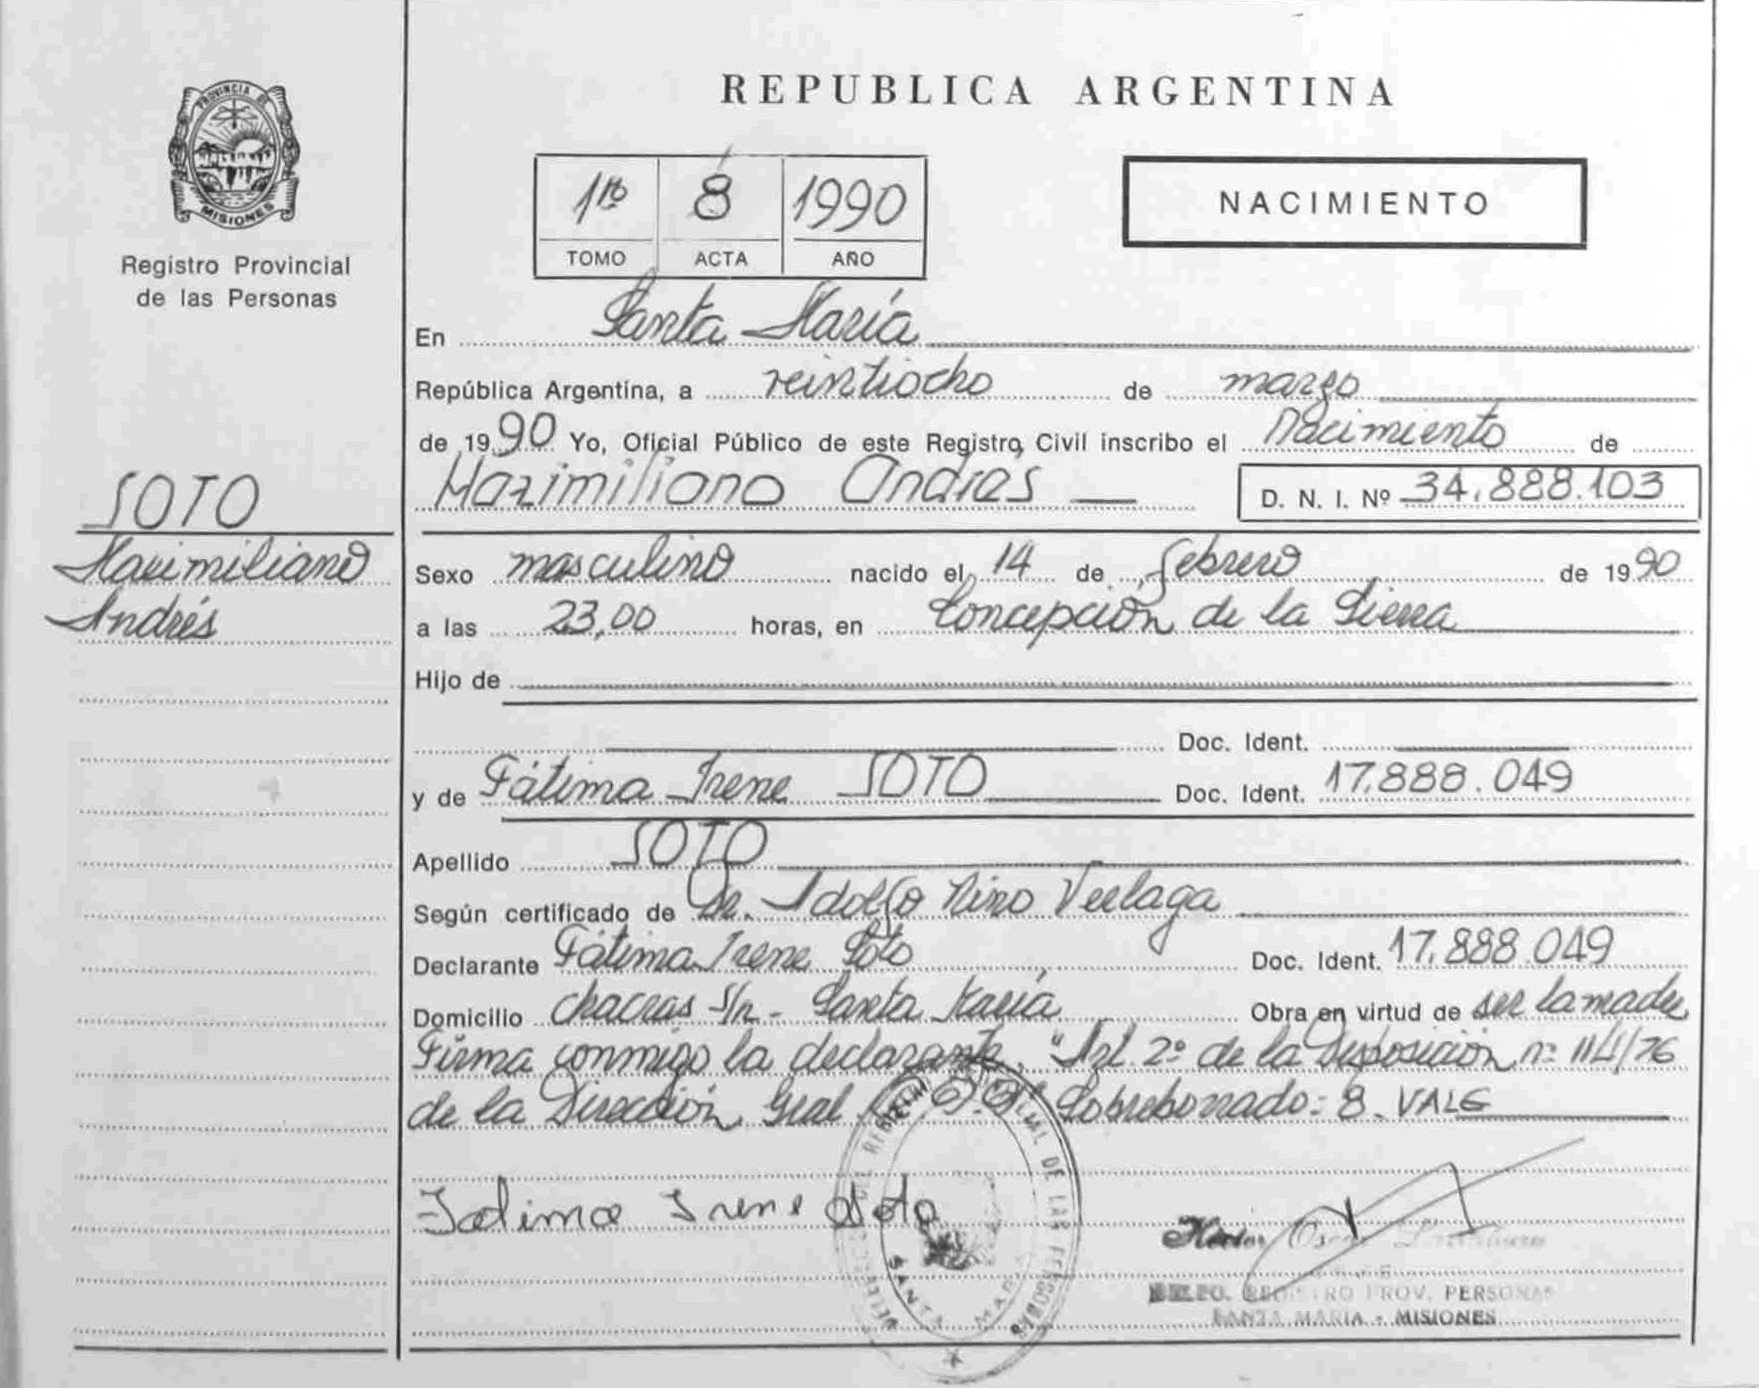 REPUBLICA ARGENTINA
PROVINCIA DE
MISIONES
Registro Provincial
de las Personas
1ro 8 1990
TOMO ACTA AÑO
NACIMIENTO
En Santa María
República Argentina, a veintiocho de marzo
de 1990 Yo, Oficial Público de este Registro Civil inscribo el Nacimiento de
Maximiliano Andrés D. N. I. Nº 34.888.103
SOTO
Maximiliano
Andrés
Sexo masculino nacido el 14 de febrero de 1990
a las 23,00 horas, en Concepción de la Sierra
Hijo de
Doc. Ident.
y de Fátima Irene SOTO Doc. Ident. 17.888.049
Apellido SOTO
Según certificado de Dr. Adolfo Nino
Declarante Fátima Irene Soto Doc. Ident. 17.888.049
Domicilio chacras S/n - Santa María Obra en virtud de ser la madre
Firma conmigo la declarante. "Art 2º de la Disposición nº
de la Dirección Gral Sobrebonado: 8. VALE
Fatima Irene Soto
DEL REGISTRO PROVINCIAL DE LAS PERSONAS
SANTA MARIA
Hector Oscar
REGISTRO PROV. PERSONAS
SANTA MARIA - MISIONES